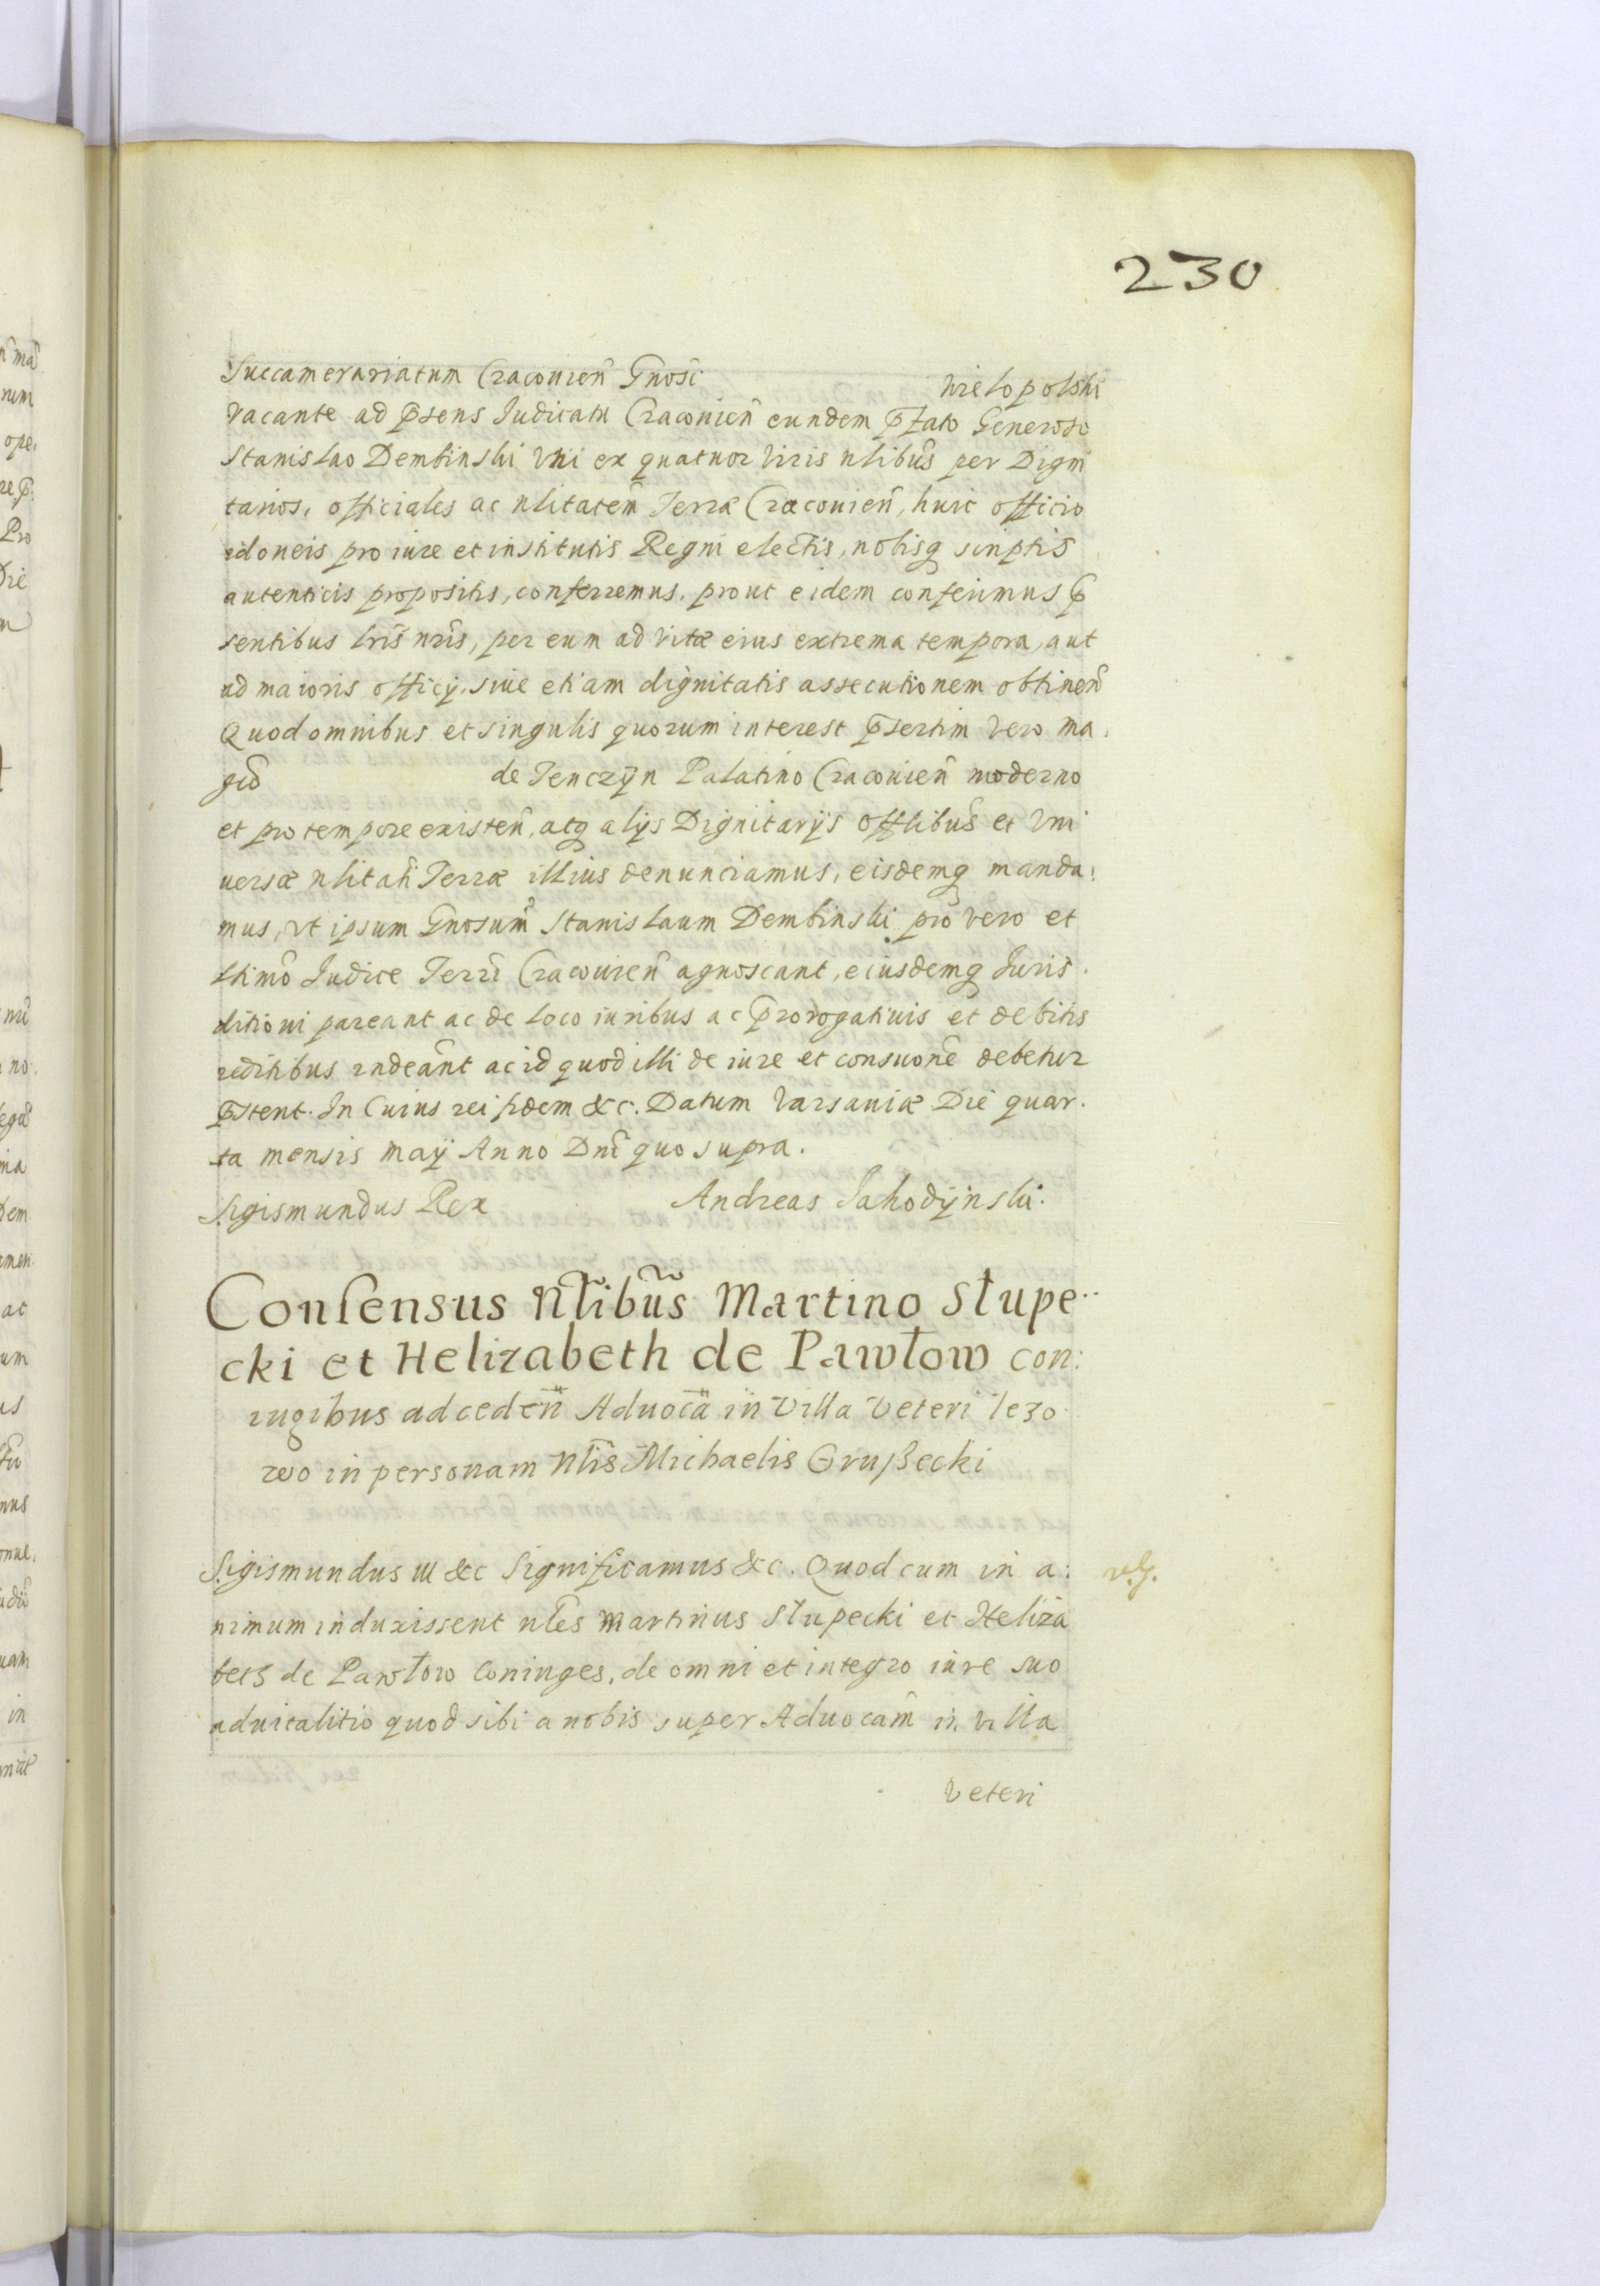 230
Succamerariatum Cracouien̄ Gnosi Wielopolski
vacante ad p̄sens Iudicatu Cracouien̄ eundem p̄fato Generoso
Stanislao Dembinski Vni ex quatuor Viris nlibus̄ per Digni
tarios, officiales ac nlitatem̄ Terræ Cracouien̄, huic officio
idoneis pro iure et institutis Regni electis, nobisq sc̄riptis
autenticis propositis, conferremus. prout eidem conferimus p̄
sentibus lris̄ nris̄, per eum ad vitæ eius extrema tempora, aut
ad maioris officij, siue etiam dignitatis assecutionem obtinen̄
Quod omnibus et singulis quorum interest p̄sertim vero ma,
gcō de Tenczÿn Palatino Cracouien̄ moderno
et pro tempore existen̄, atq alijs Dignitarijs offlibus̄ et Vni
uersæ nlitati Terræ illius denunciamus, eisdemq manda:
mus, vt ipsum Gnosum̄ Stanislaum Dembinski pro vero et
ltimō Iudice Terrī Cracouien̄ agnoscant, eiusdemq Iuris.
ditioni pareant ac de loco iuribus ac p̄rorogatiuis et debitis
reditibus rndeānt ac id quod illi de iure et consuonē debetur
p̄stent. In Cuius rei fidem &c. Datum Varsauiæ Die quar.
ta mensis Maÿ Anno Dnī quo supra.
Sigismundus Rex Andreas Iahodÿnski.
Consensus Nlibus̄ Martino Słupe
cki et Helizabeth de Pawłow con:
iugibus ad ceden̄ Aduocā in Villa Veteri Iezo
wo in personam Nlis̄ Michaelis Grußecki
Sigismundus III &c Significamus &c. Quod cum in a:
nimum induxissent nlēs Martinus Słupecki et Heliza
beth de Pawłow Coniuges, de omni et integro iure suo
aduitalitio quod sibi a nobis super Aduocam̄ in villa
Veteri